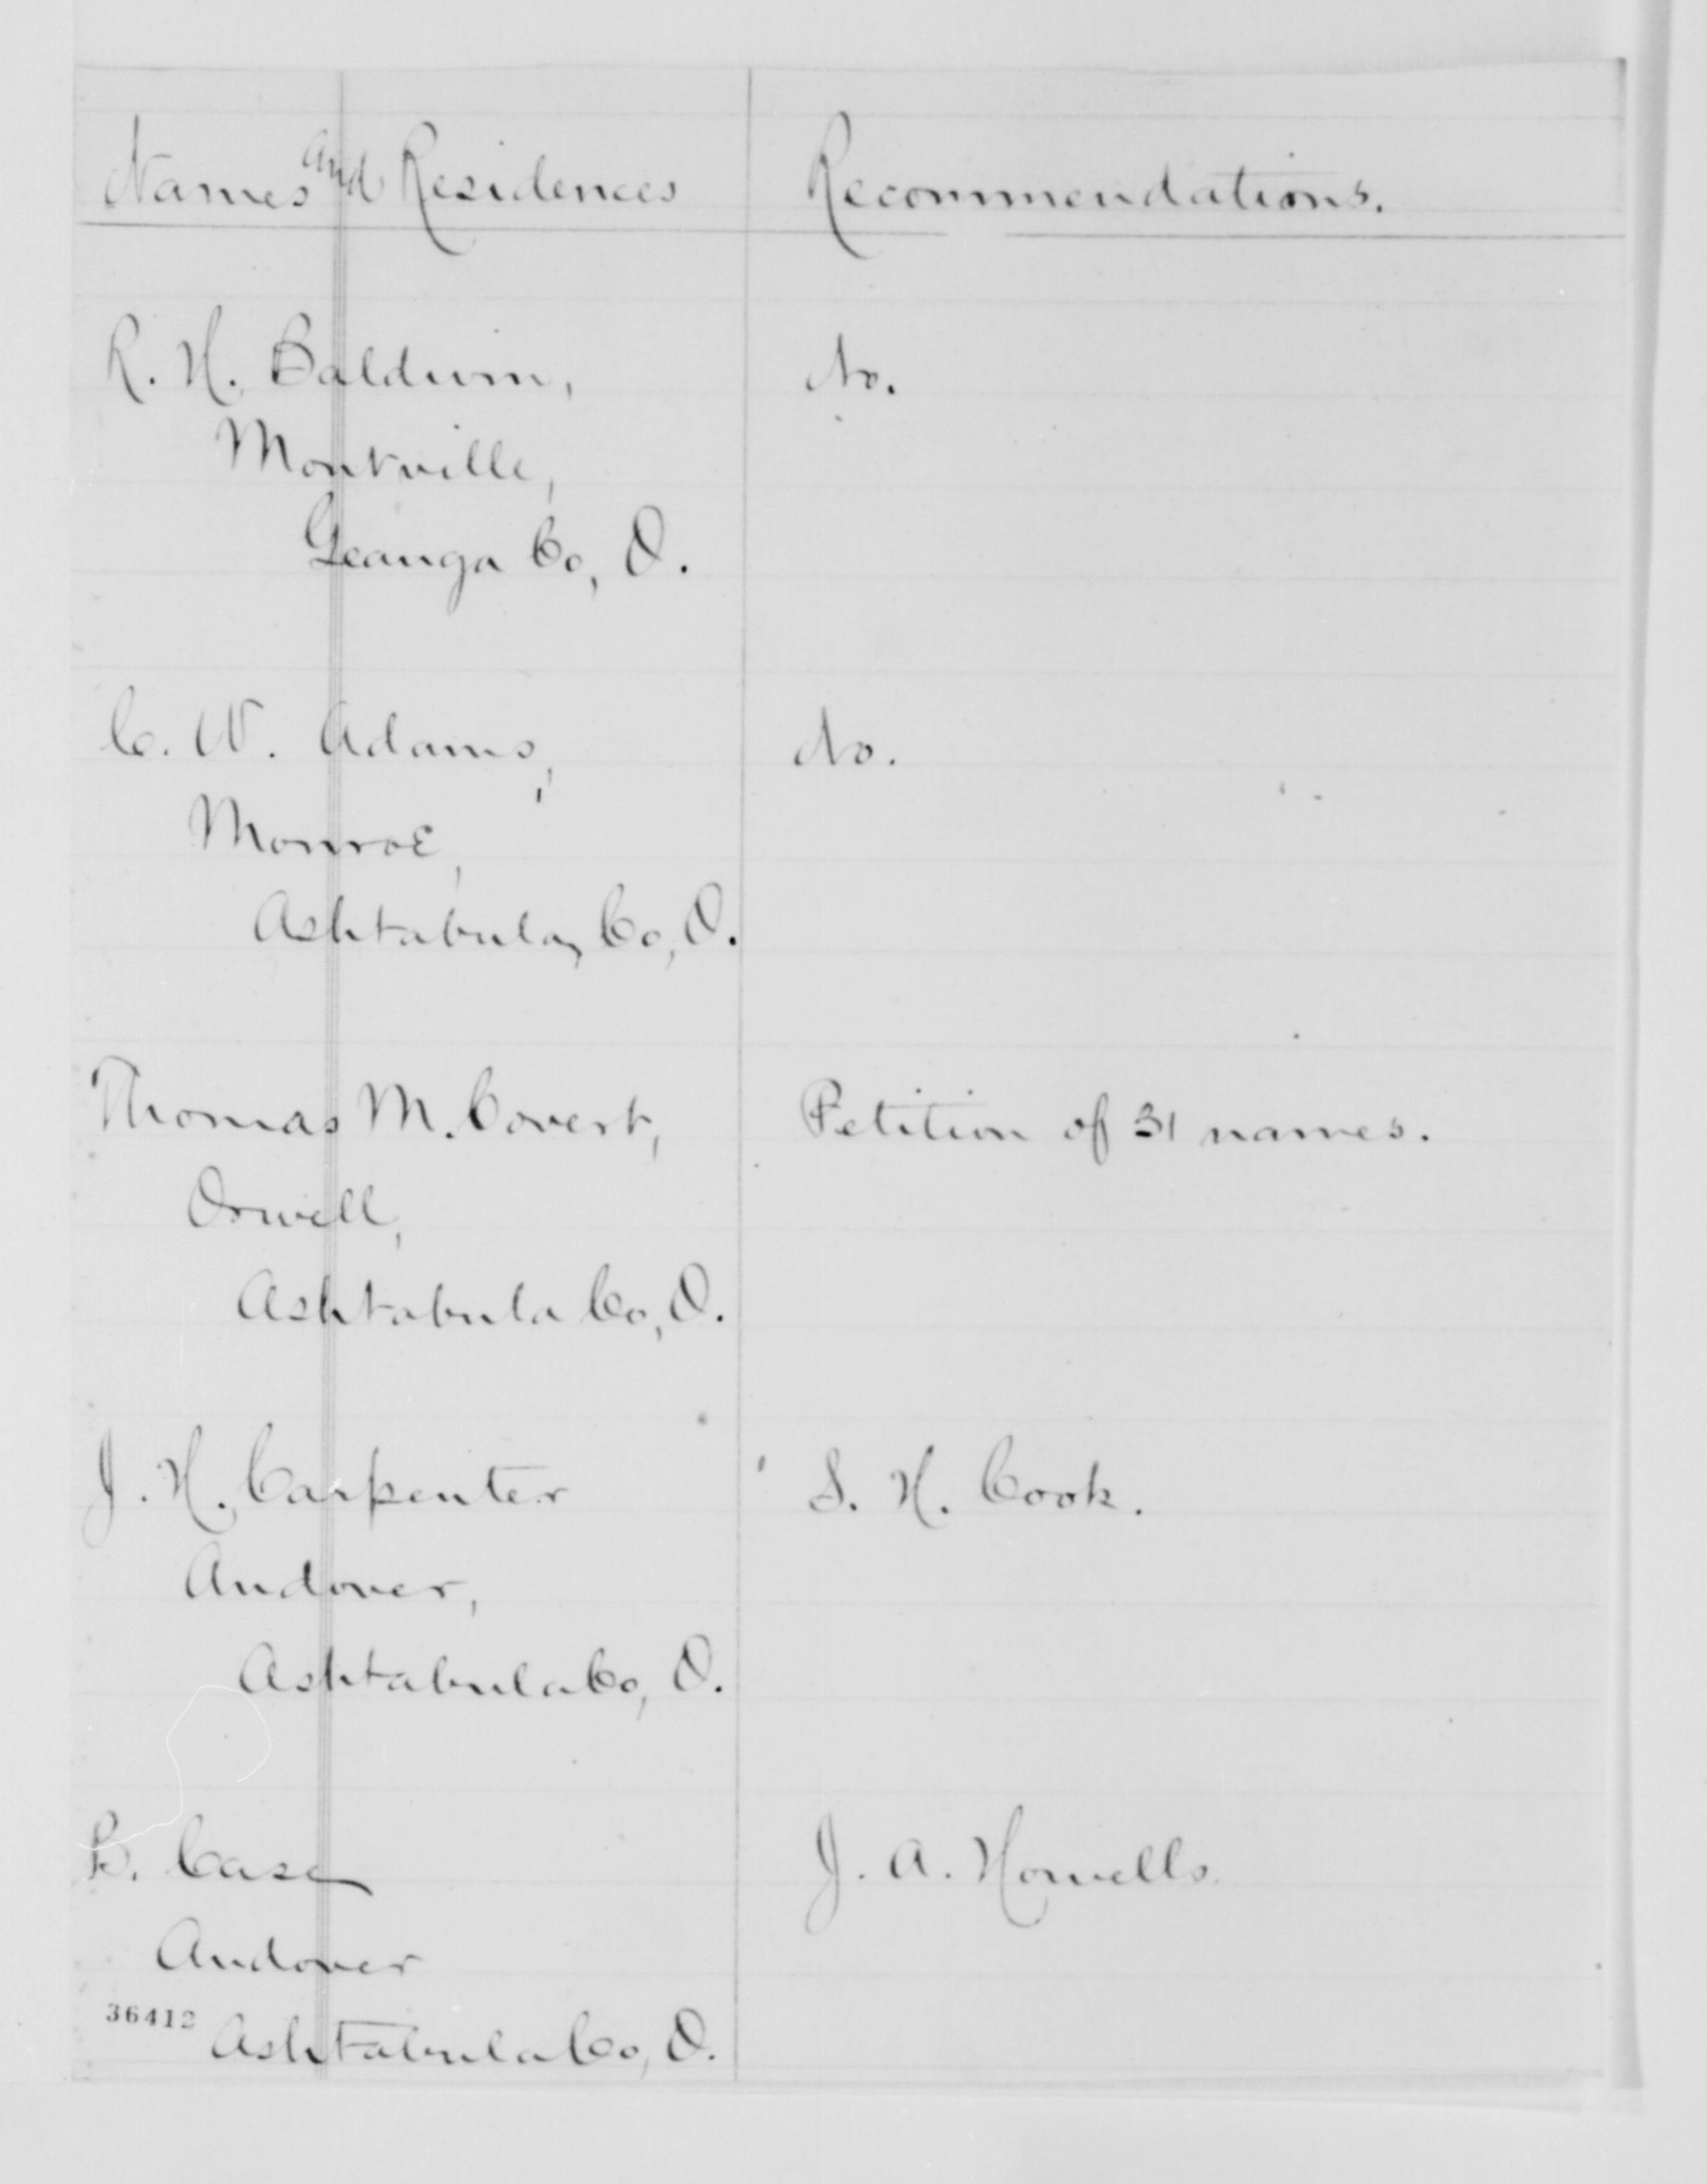 Names and Residences Recommendations.
R. H. Baldwin, No.
Montville,
Geauga Co, O.
C. W. Adams, No.
Monroe,
Ashtabula, Co, O.
Thomas M. Covert, Petition of 31 names.
Orwell,
Ashtabula Co, O.
J. H. Carpenter S. H. Cook.
Andover,
Ashtabula Co, O.
B. Case J. A. Howells.
Andover
36412 Ashtabula Co, O.